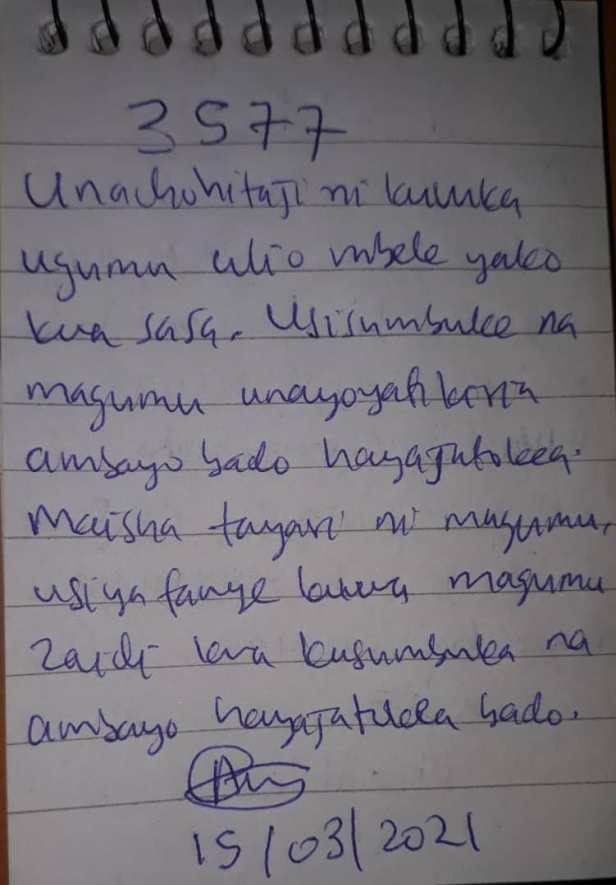 3577
Unachohitaji ni kuvuka
ugumu ulio mbele yako
kwa sasa. Usisumbuke na
magumu unayoyafikiria
ambayo bado hayajatokea.
Maisha tayari ni magumu,
usiyafanye kuwa magumu
zaidi kwa kusumbuka na
ambayo hayajatokea bado.
15/03/2021